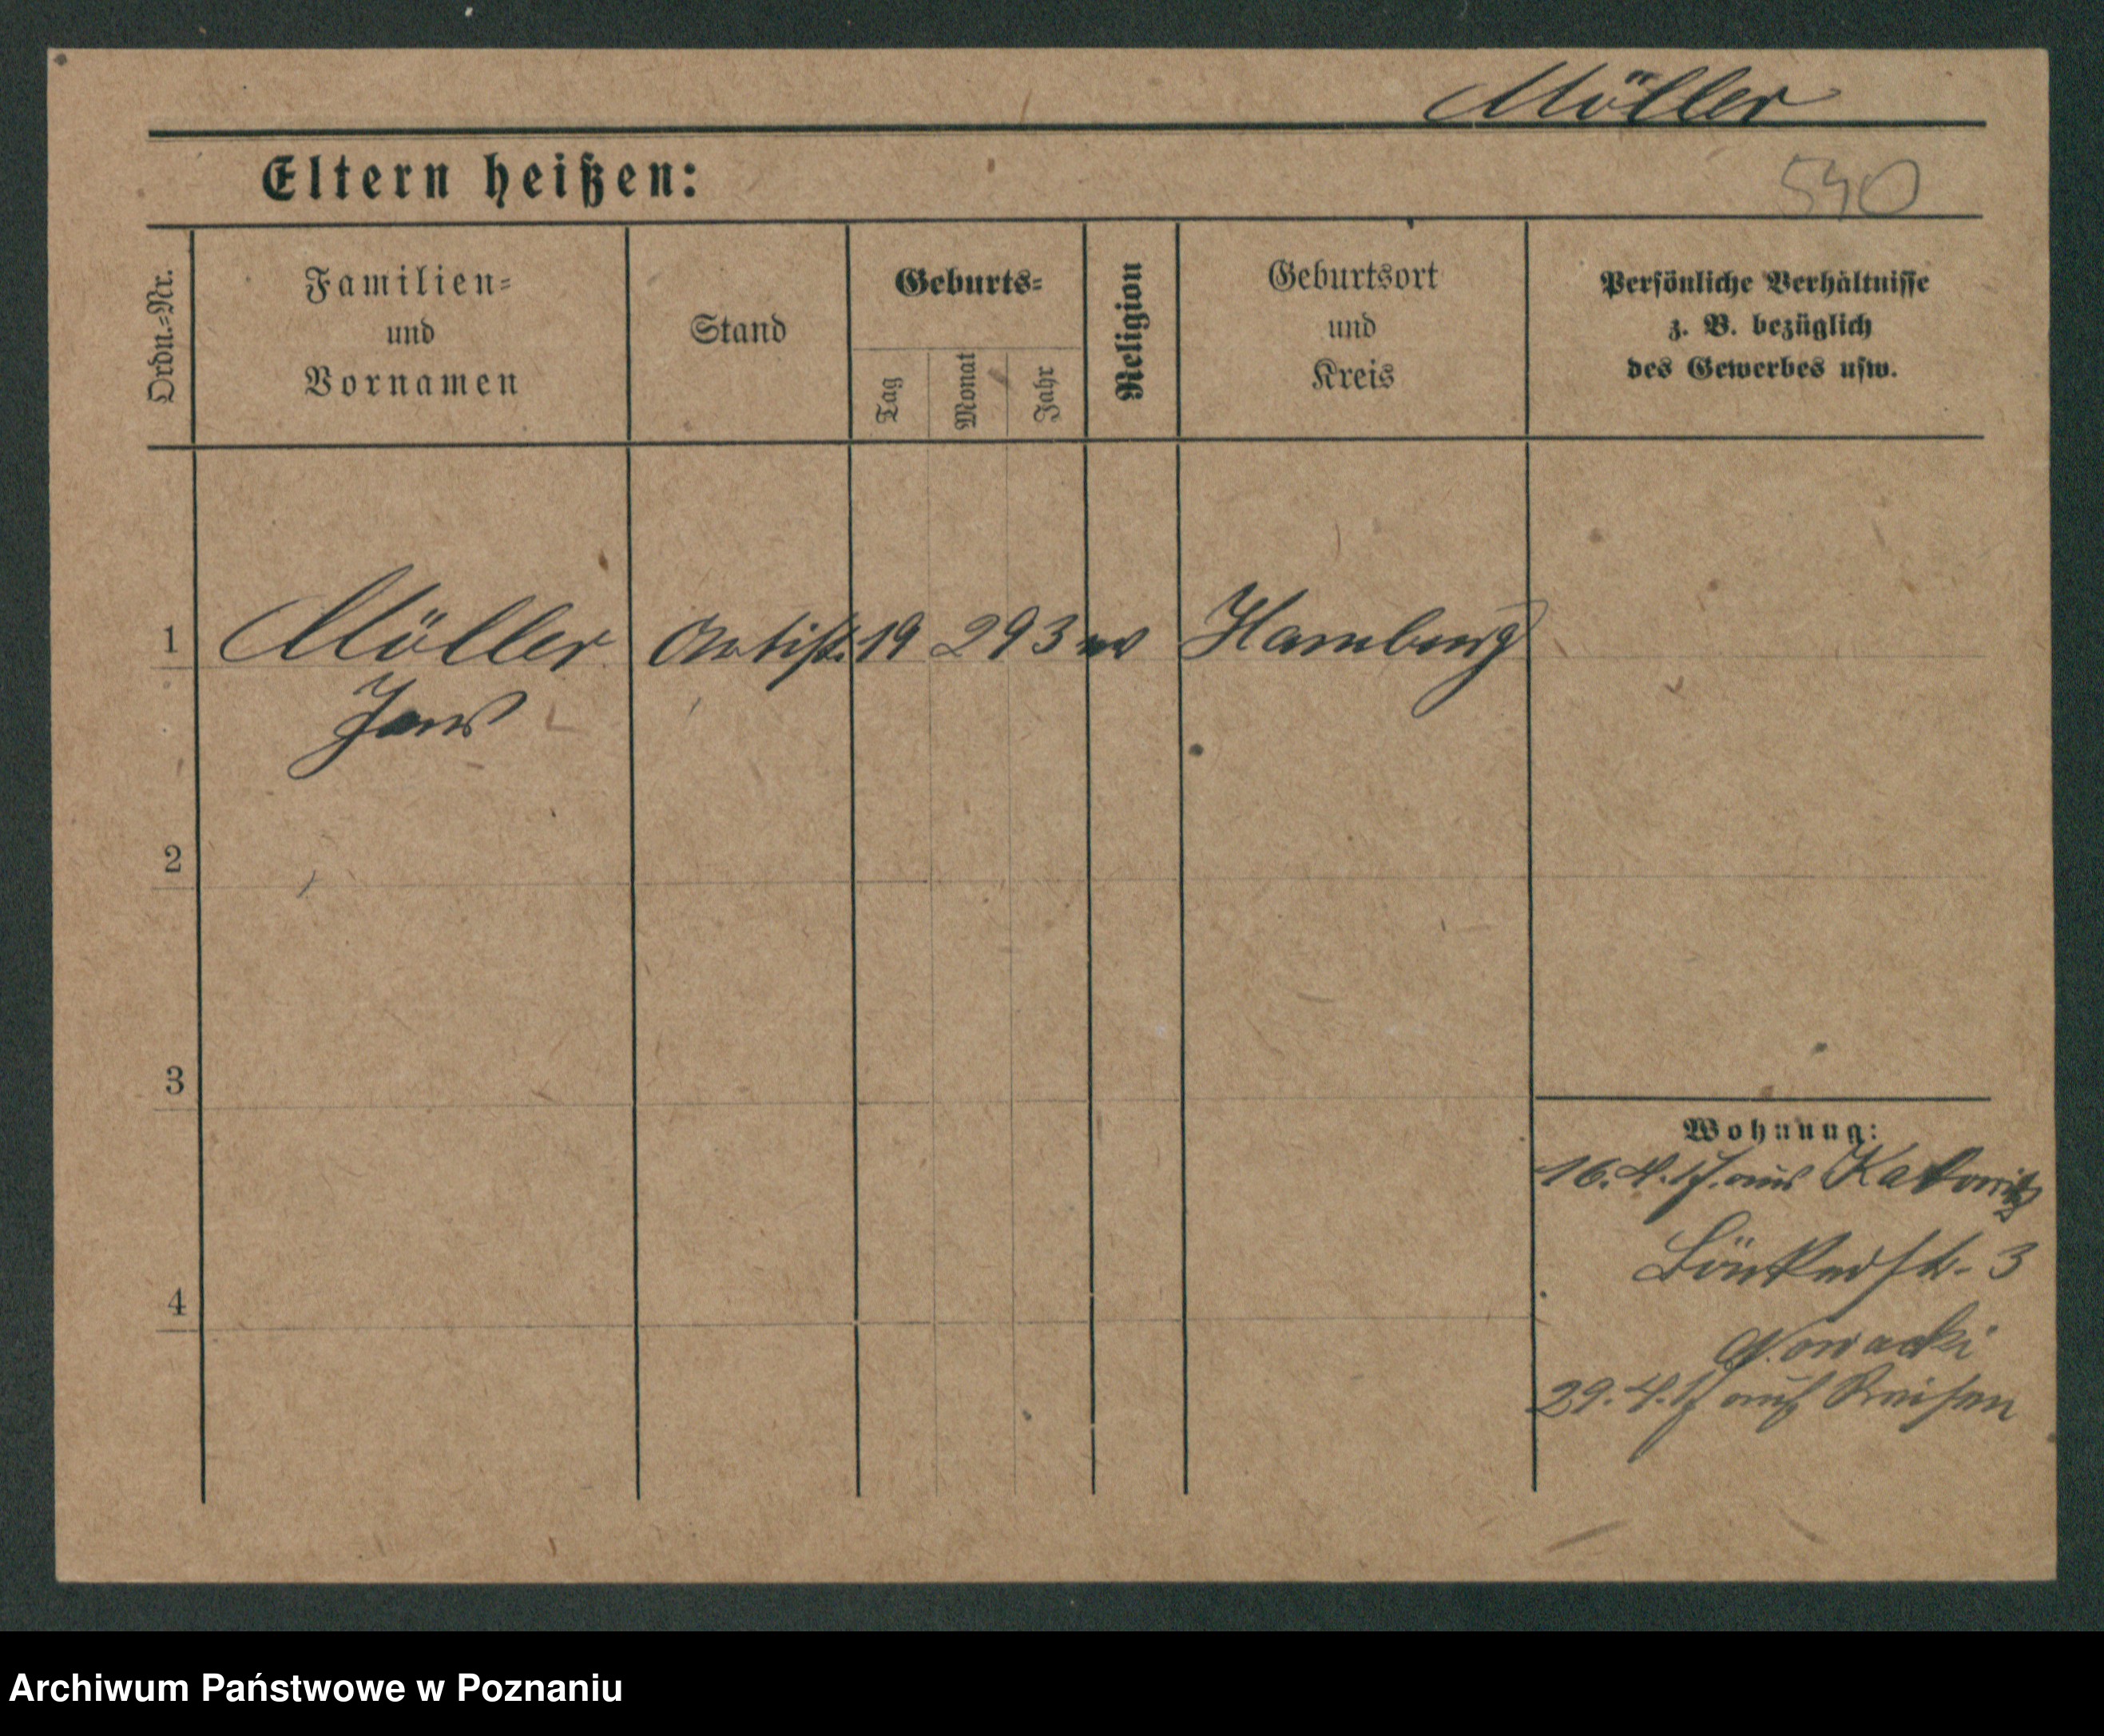 Möller
540
Eltern heißen:
Ordn.=Nr.
Familien=
und
Vornamen
Stand
Geburts=
Tag
Monat
Jahr
Religion
Geburtsort
und
Kreis
Persönliche Verhältnisse
z. B. bezüglich
des Gewerbes usw.
1 Möller Artist. 19 2 93 Hamburg
Jans
2
3
4
Wohnung:
16.4.17. aus Kattowitz
3
Nowacki
29.4.17 auf Reisen
Archiwum Państwowe w Poznaniu